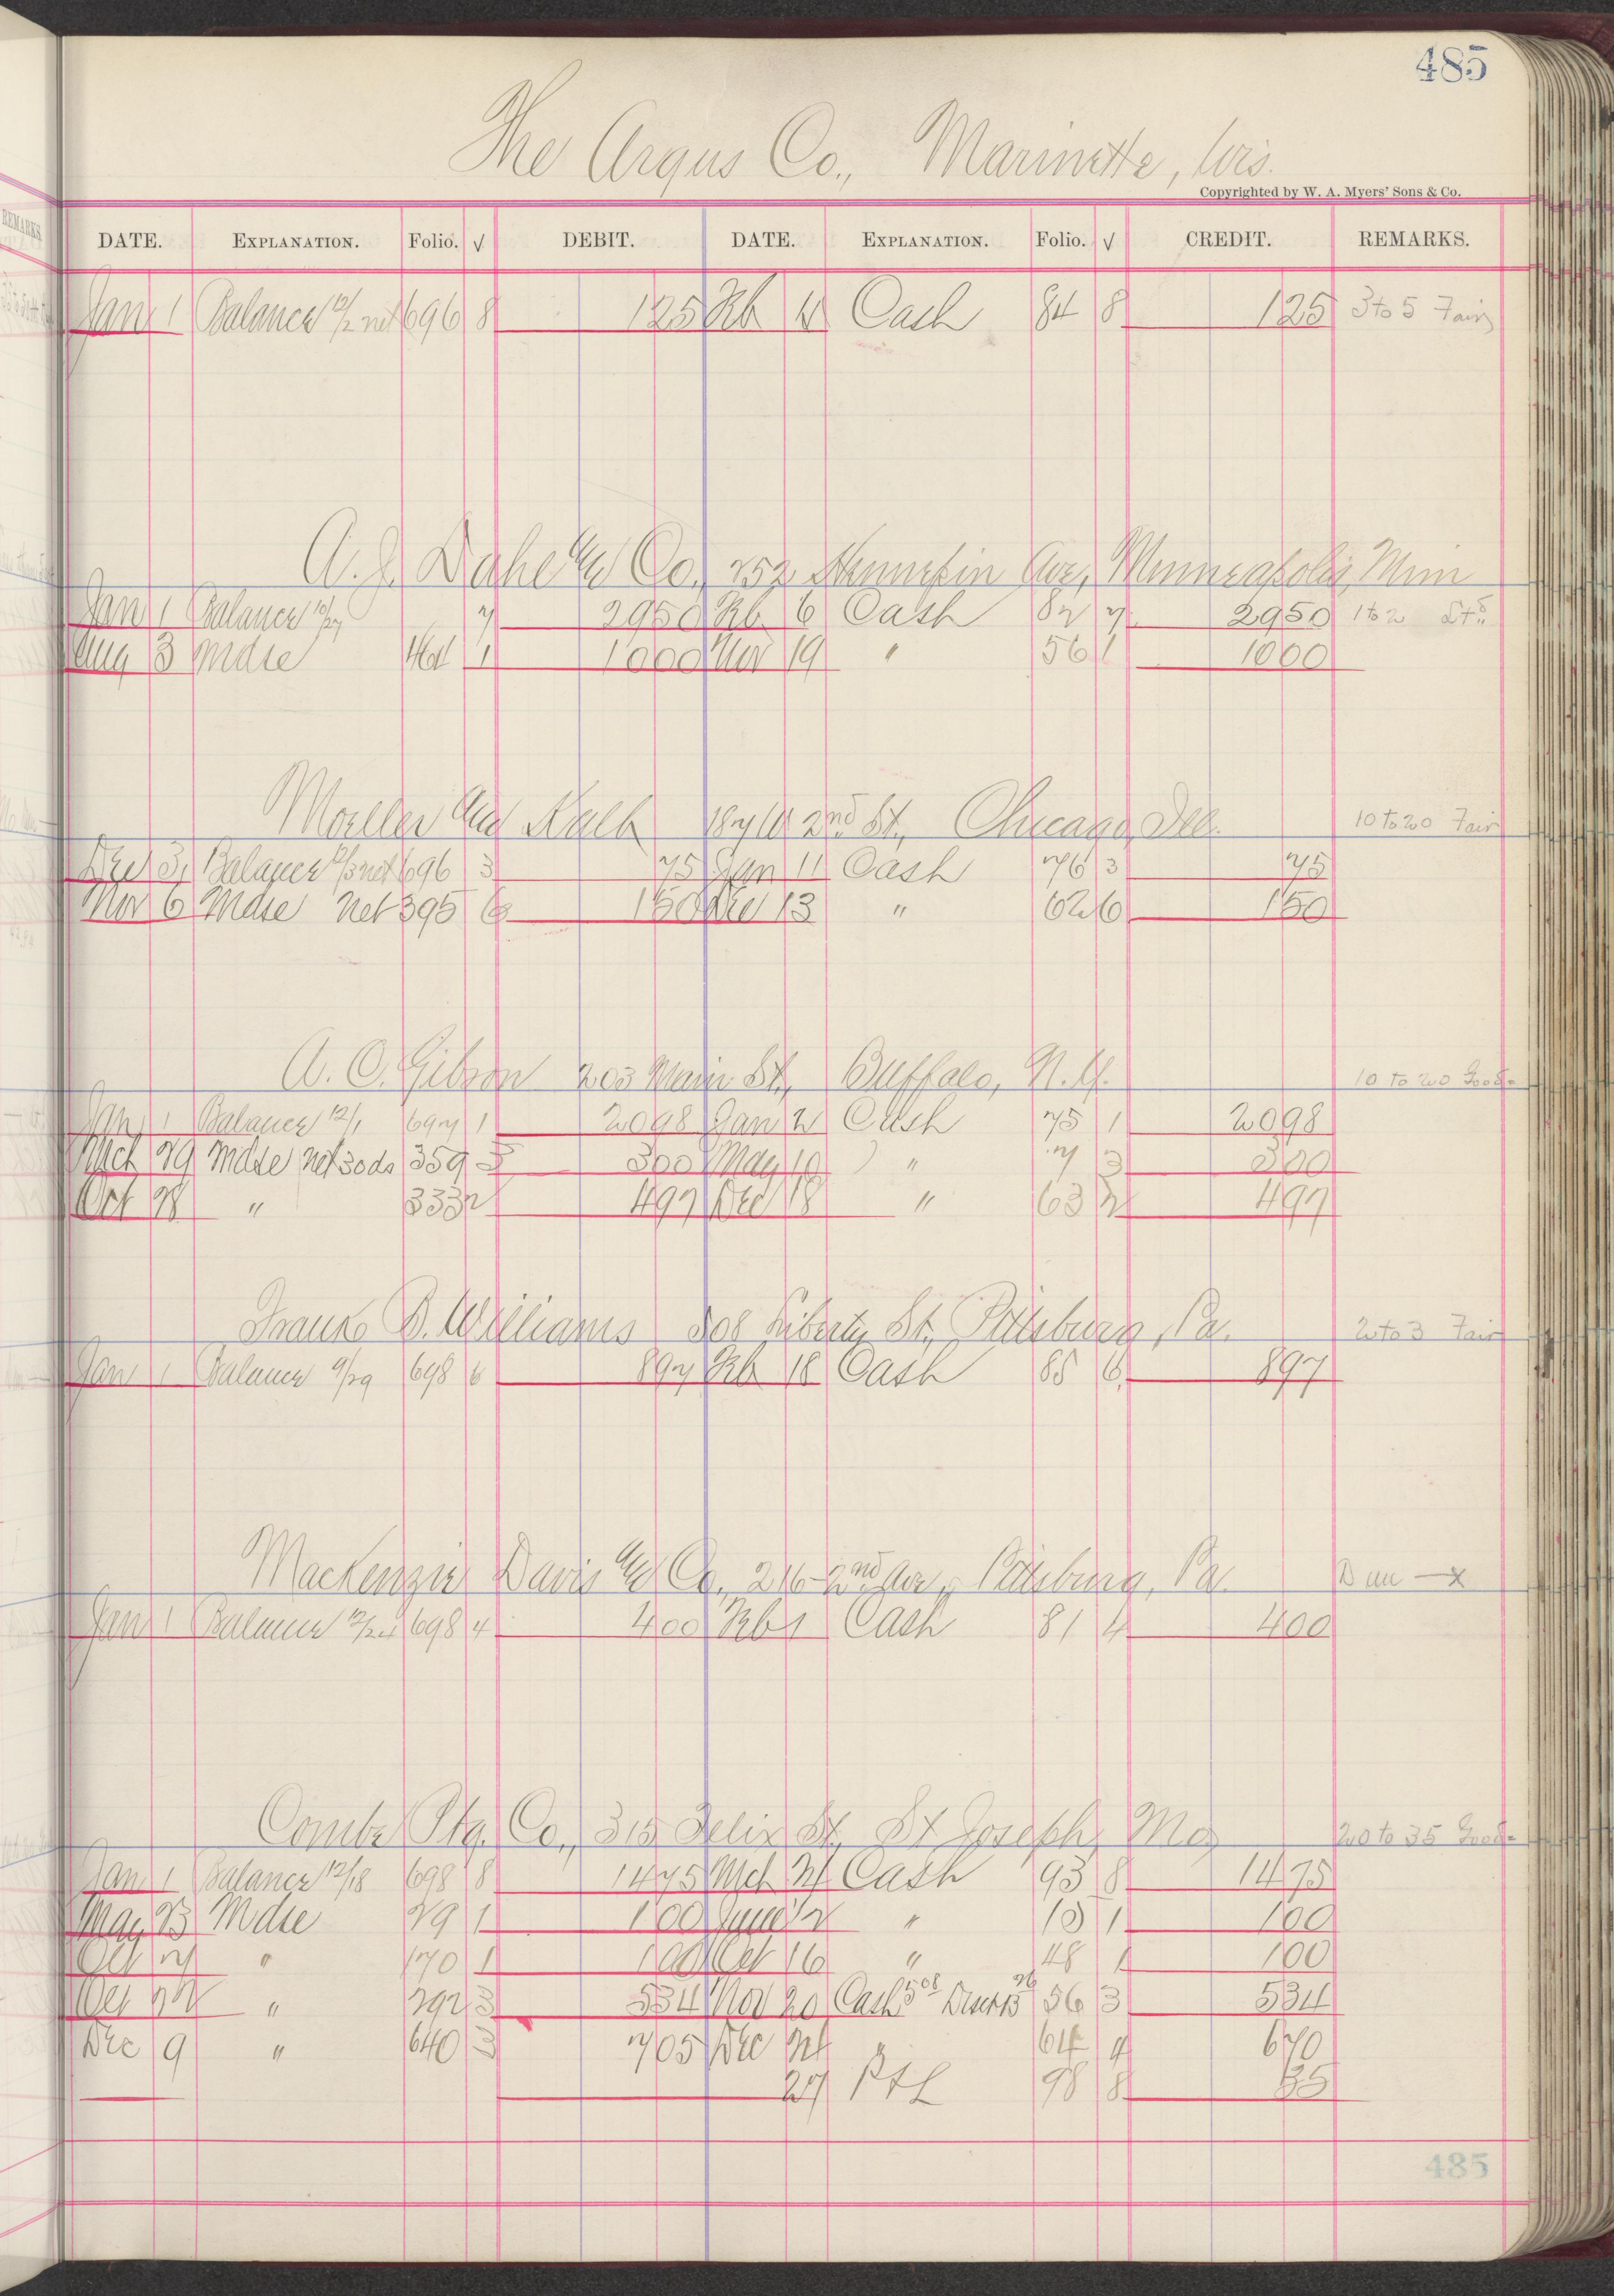 485
The Argus Co., Marinette, Wis.
Copyrighted by W. A. Myers' Sons & Co.
DATE. EXPLANATION. Folio. √ DEBIT. DATE. EXPLANATION. Folio. √ CREDIT. REMARKS.
Jan 1 Balance 12/2 net 696 8 125 Feb Cash 84 8 125 3 to 5 Fair
A. J. Dahe and Co., 252 Hennepin Ave, Minneapolis, Minn
Jan 1 Balance 10/27 7 2950 Feb 6 Cash 82 7 2950 1 to 2
Aug 3 Mdse 164 1 1000 Nov 19 " 56 1 1000
Moeller and Kalb 187 W 2nd St., Chicago, Ill. 10 to 20 Fair
Dec 31 Balance 12/3 net 696 3 75 Jan 11 Cash 76 3 75
Nov 6 Mdse Net 395 6 150 Dec 13 " 62 6 150
A. C. Gibson 203 Main St., Buffalo, N.Y. 10 to 20 Good
Jan 1 Balance 12/1 697 1 2098 Jan 2 Cash 75 1 2098
Mch 29 Mdse net 30 ds 359 3 300 May 10 " 7 3 300
Oct 28 " 333 2 497 Dec 18 " 63 2 497
Frank B. Williams 308 Liberty St., Pittsburg, Pa. 2 to 3 Fair
Jan 1 Balance 9/29 698 6 897 Feb 18 Cash 85 6 897
MacKenzie Davis and Co., 216-2nd Ave., Pittsburg, Pa. x
Jan 1 Balance 12/24 698 4 400 Feb 1 Cash 81 4 400
Combe Ptg. Co., 315 Felix St., St Joseph, Mo, 20 to 35 Good
Jan 1 Balance 12/18 698 8 1475 Mch 24 Cash 93 8 1475
May 23 Mdse 29 1 100 June 12 " 15 1 100
Oct 7 " 170 1 100 Oct 16 " 48 1 100
Oct 22 " 292 3 534 Nov 20 Cash 508 Disct 26 56 3 534
Dec 9 " 640 705 Dec 24 " 64 4 670
27 P & L 98 8 35
485